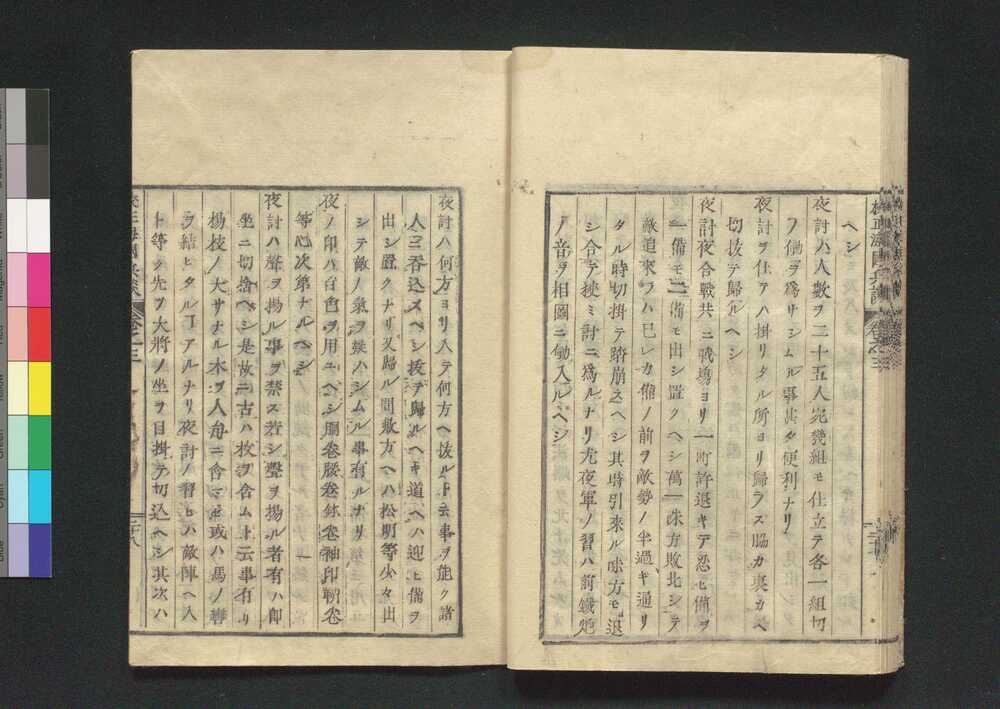 ヘシ
夜討ハ人數ヲ二十五人宛幾組モ仕立テ各一組切
フ働ヲ爲サシムル事甚タ便利ナリ
夜討ヲ仕テハ掛リタル所ヨリ歸ラス脇カ裏カヘ
切抜テ歸ルヘシ
夜討夜合戰共ニ戰塲ヨリ一町許退キテ忍ヒ備ヲ
一備モ二備モ出シ置クヘシ萬一味方敗北シテ
敵追來ラハ已レカ備ノ前ヲ敵勢ノ半過キ通リ
タル時切掛テ踏崩スヘシ其時引來ル味方モ退
シ合テ挾ミ討ニ爲ルナリ尤夜軍ノ習ハ前鐵炮
ノ音ヲ相圖ニ働入ルヘシ
夜討ハ何方ヨリ入テ何方ヘ抜ルト云事ヲ能ク諸
人ニ呑込スヘシ抜テ歸ルヘキ道ヘハ迎ヒ備ヲ
出シ置クナリ又歸ル間敷方ヘハ松明等少々出
シテ敵ノ氣ヲ疑ハシムル事有ルナリ
夜ノ印ハ白色ヲ用ユヘシ胴卷腰卷鉢卷袖印韜卷
等心次第ナルヘシ
夜討ハ聲ヲ揚ル事ヲ禁ス若シ聲ヲ揚ル者有ハ即
坐ニ切捨ヘシ是故ニ古ハ枚ヲ含ムト云事有リ
楊枝ノ大サナル木ヲ人毎ニ含マセ或ハ馬ノ轡
ヲ結ヒタル丁アルナリ夜討ノ習ヒハ敵陣ヘ入
ト等ク先ヲ大將ノ坐ヲ目掛テ切込ヘシ其次ハ